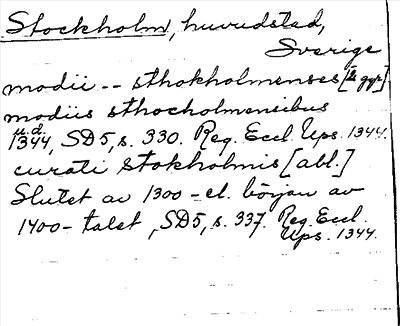 Stockholm, huvudstad,
Sverige
modii -- sthokholmenses
modiis sthocholmensibus
u.d.
1344, SD5, s. 330. Reg. Eccl. Ups. 1344.
curati Stokholmis [abl.]
Slutet av 1300- el. början av
1400-talet, SD5, s. 337. Reg. Eccl.
Ups. 1344.